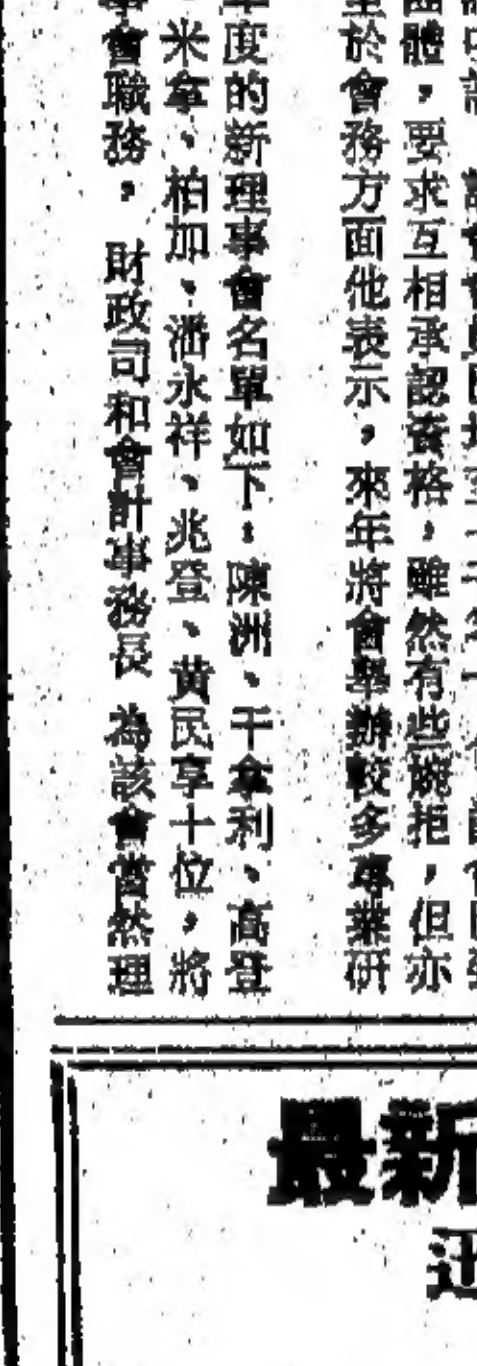 體，要求互相承認資格，雖然有些婉拒，但亦
於會務方面他表示，來年將會舉辦較多專業研
年度的新理事會名單如下：陳洲、干拿利、高登
、米拿、柏加、潘永祥、兆登、黃民享十位，將
會職務。財政司和會計事務長為該會當然理
最新